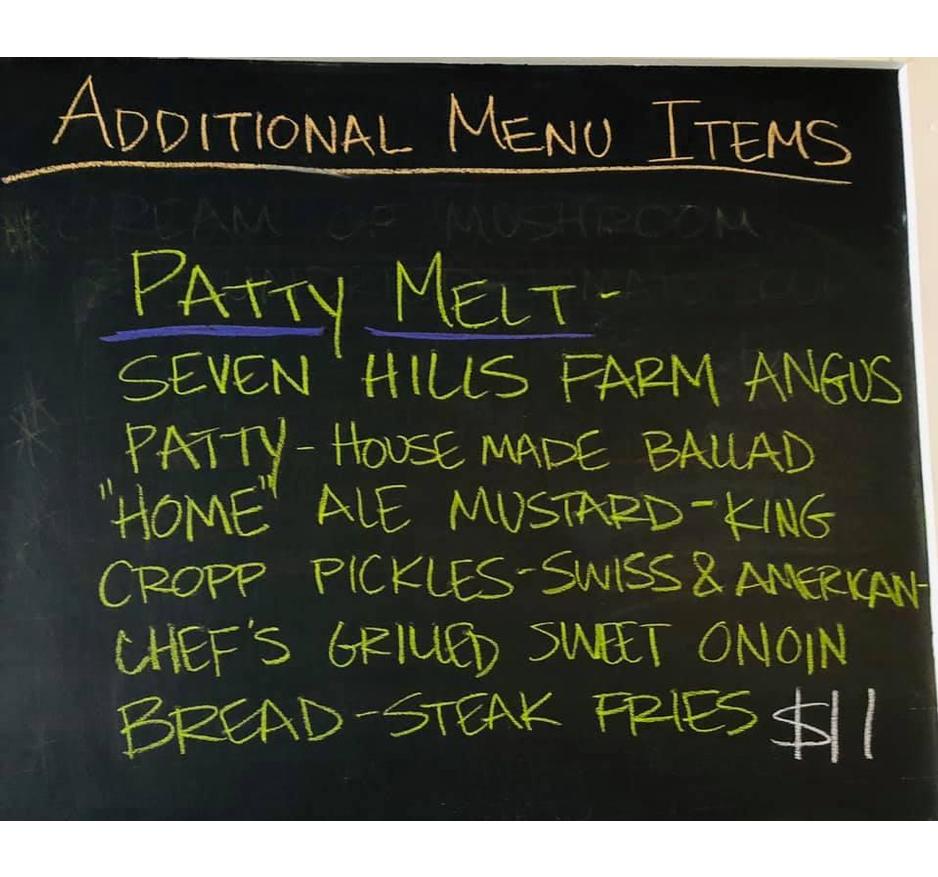 ADDITIONAL MENU ITEMS
CREAM OF MUSHROOM
PATTY MELT-
SEVEN HILLS FARM ANGUS
PATTY-HOUSE MADE BALLAD
"HOME" ALE MUSTARD-KING
CROPP PICKLES-SWISS & AMERICAN-
CHEF'S GRILLED SWEET ONOIN
BREAD-STEAK FRIES $11